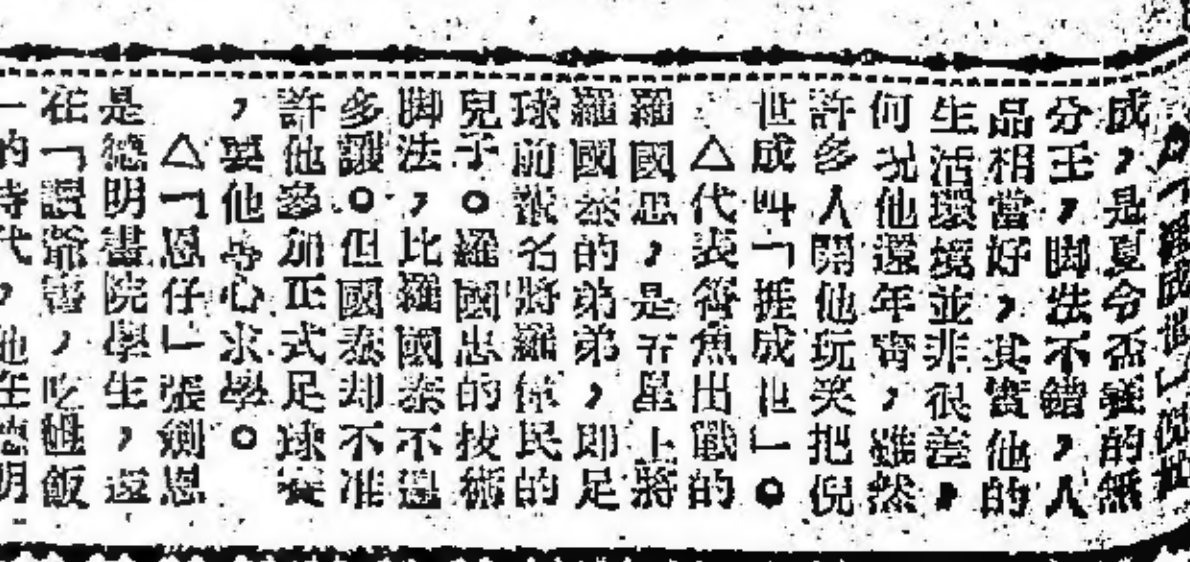 成，是夏令盃賽的無
分王，脚法不錯，人
品相當好，其實他的
生活環境並非很差，
何况他還年青，雖然
許多人開他玩笑把倪
世成叫「捱成世」。
△代表齊魚出戰的
羅國忠，是五星上將
羅國泰的弟弟，即足
球前輩名將羅倧民的
兒子。羅國忠的技術
脚法，比羅國泰不遑
多讓。但國泰却不准
許他參加正式足球賽
，要他專心求學。
△「恩仔」張劍恩
是德明書院學生，還
在「讀爺書，吃乸飯
一的時代，他在德明